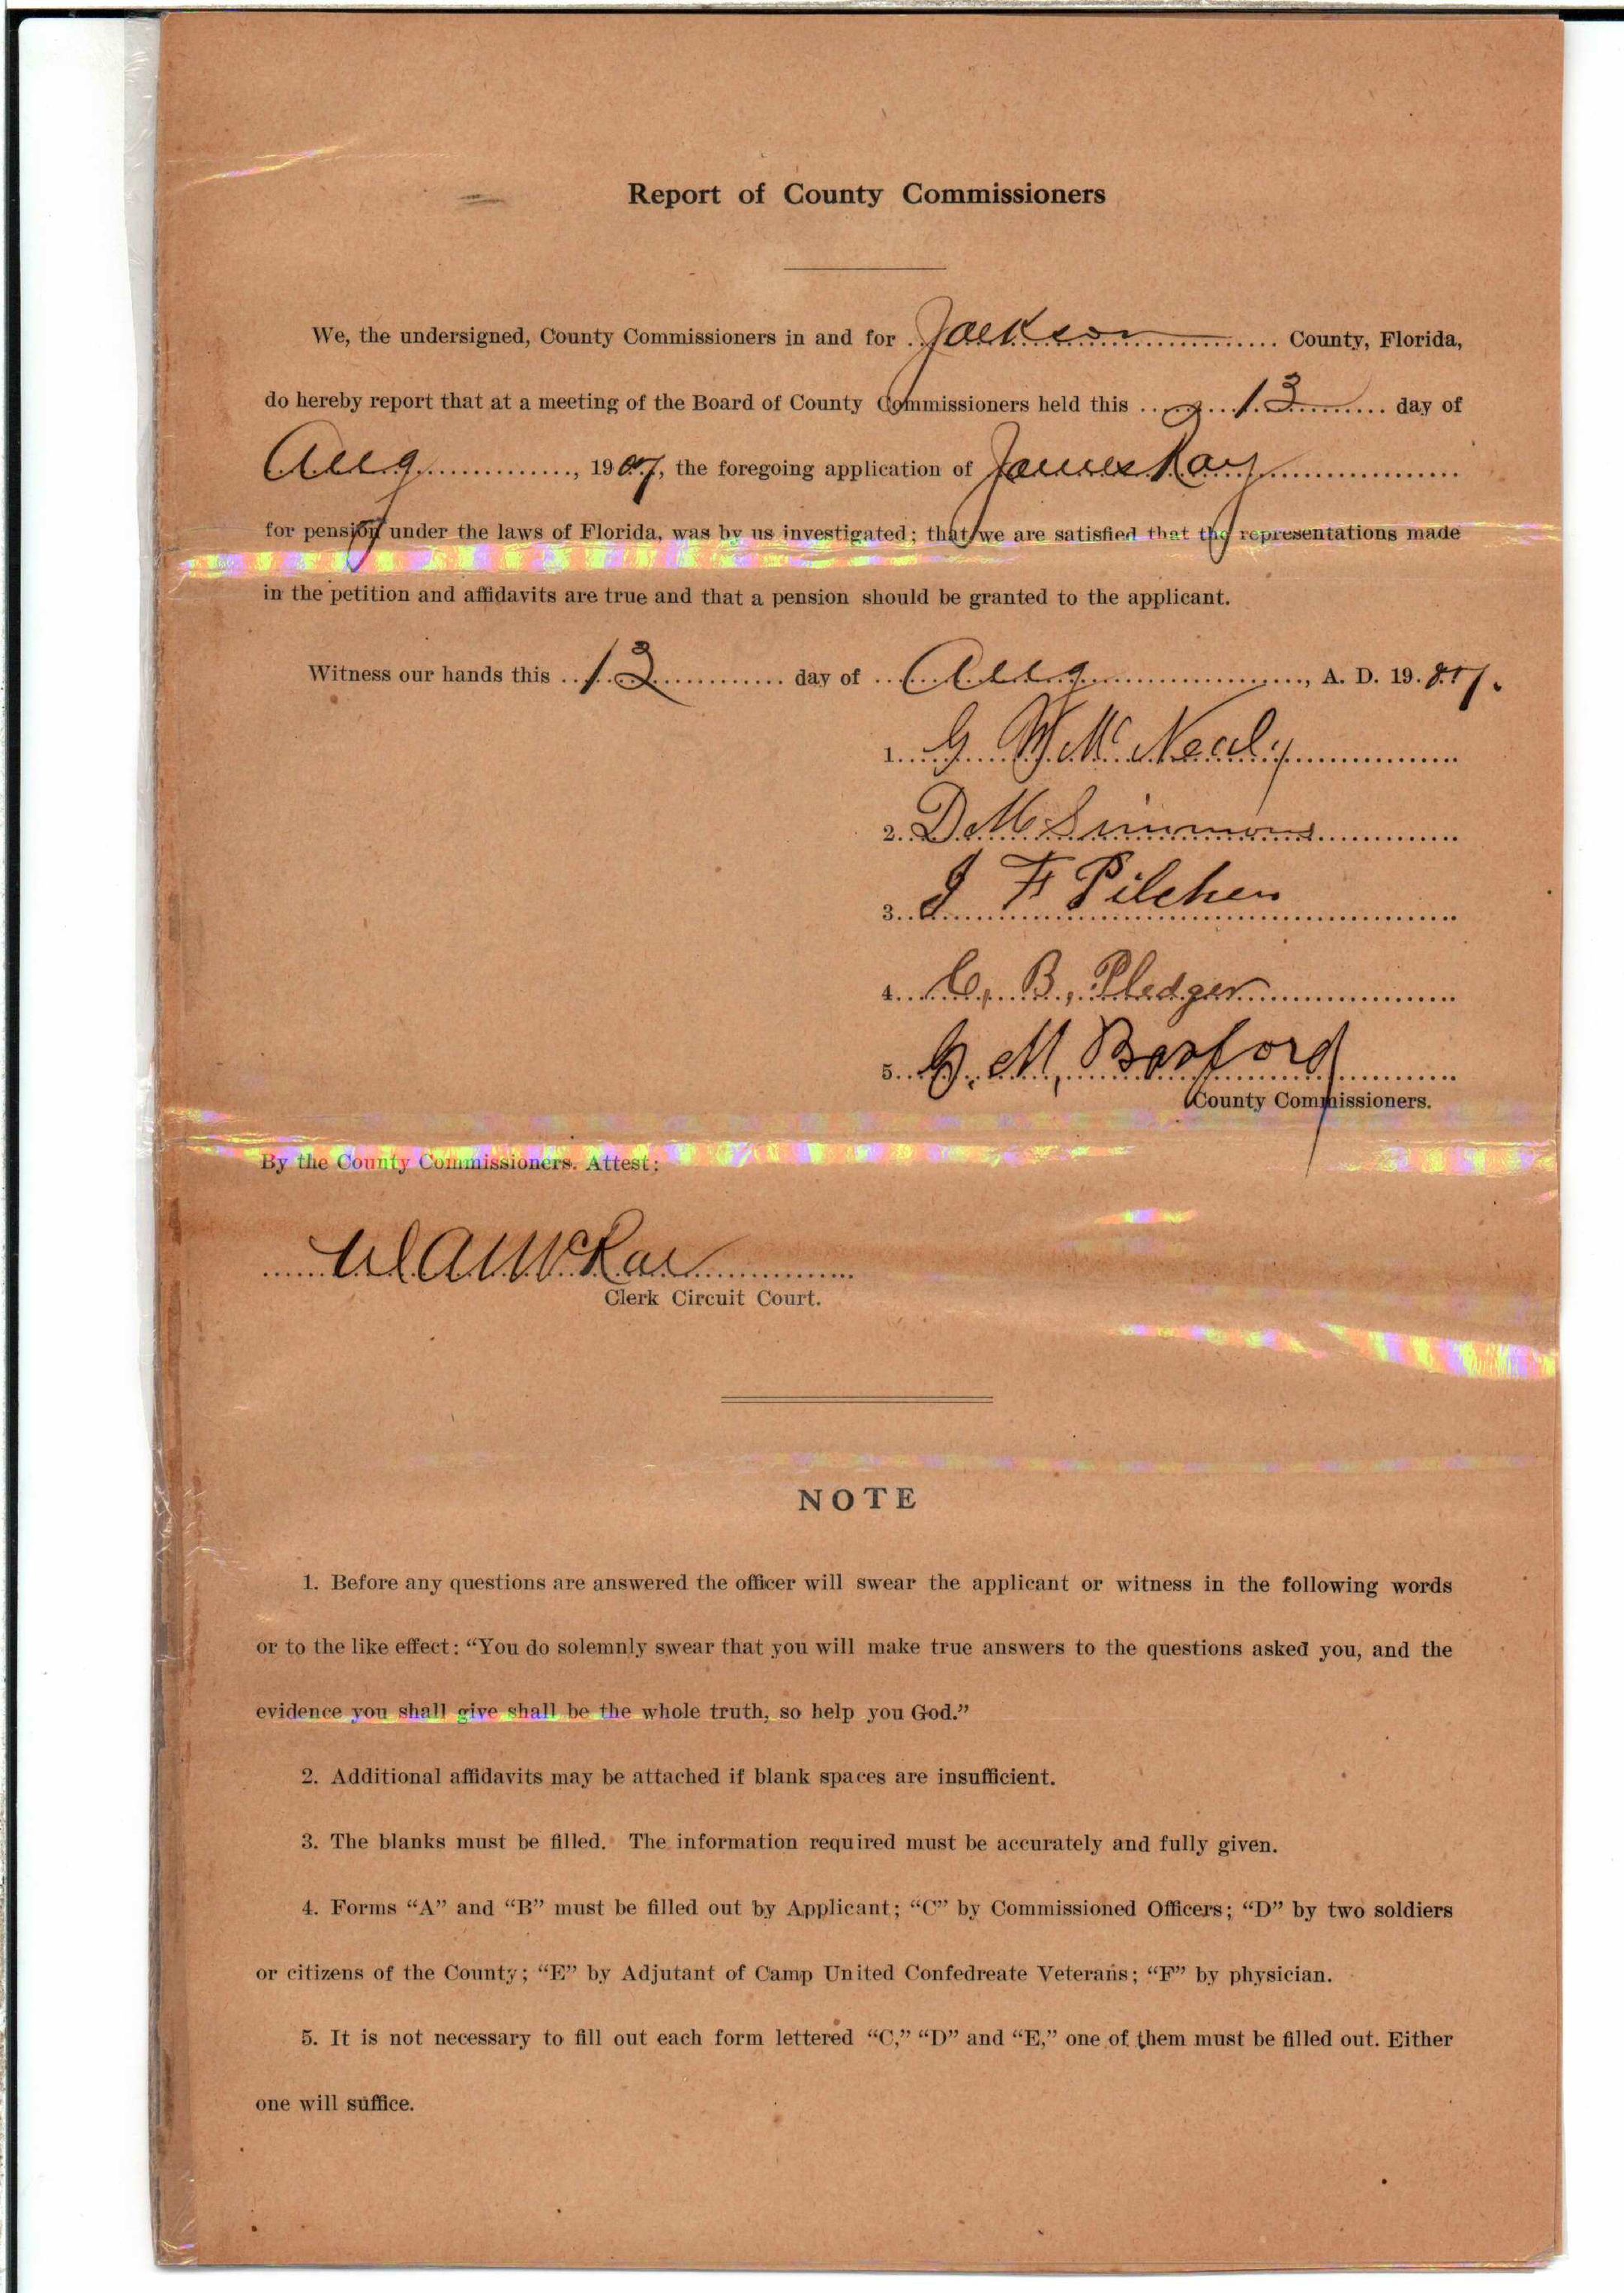 Report of County Commissioners
We, the undersigned, County Commissioners in and for Jackson County, Florida,
do hereby report that at a meeting of the Board of County Commissioners held this 13 day of
Aug, 1907, the foregoing application of James Ray
for pension under the laws of Florida, was by us investigated; that we are satisfied that the representations made
in the petition and affidavits are true and that a pension should be granted to the applicant.
Witness our hands this 13 day of Aug, A. D. 1907.
1. G. W. Mc Nealy
2. D M Simmons
3. J F Pilcher
4. C. B. Pledger
5. G. M. Basford
County Commissioners.
By the County Commissioners. Attest:
Clerk Circuit Court.
NOTE
1. Before any questions are answered the officer will swear the applicant or witness in the following words
or to the like effect: “You do solemnly swear that you will make true answers to the questions asked you, and the
evidence you shall give shall be the whole truth, so help you God.”
2. Additional affidavits may be attached if blank spaces are insufficient.
3. The blanks must be filled. The information required must be accurately and fully given.
4. Forms “A” and “B” must be filled out by Applicant; “C” by Commissioned Officers; “D” by two soldiers
or citizens of the County; “E” by Adjutant of Camp United Confedreate Veterans; “F” by physician.
5. It is not necessary to fill out each form lettered “C,” “D” and “E,” one of them must be filled out. Either
one will suffice.